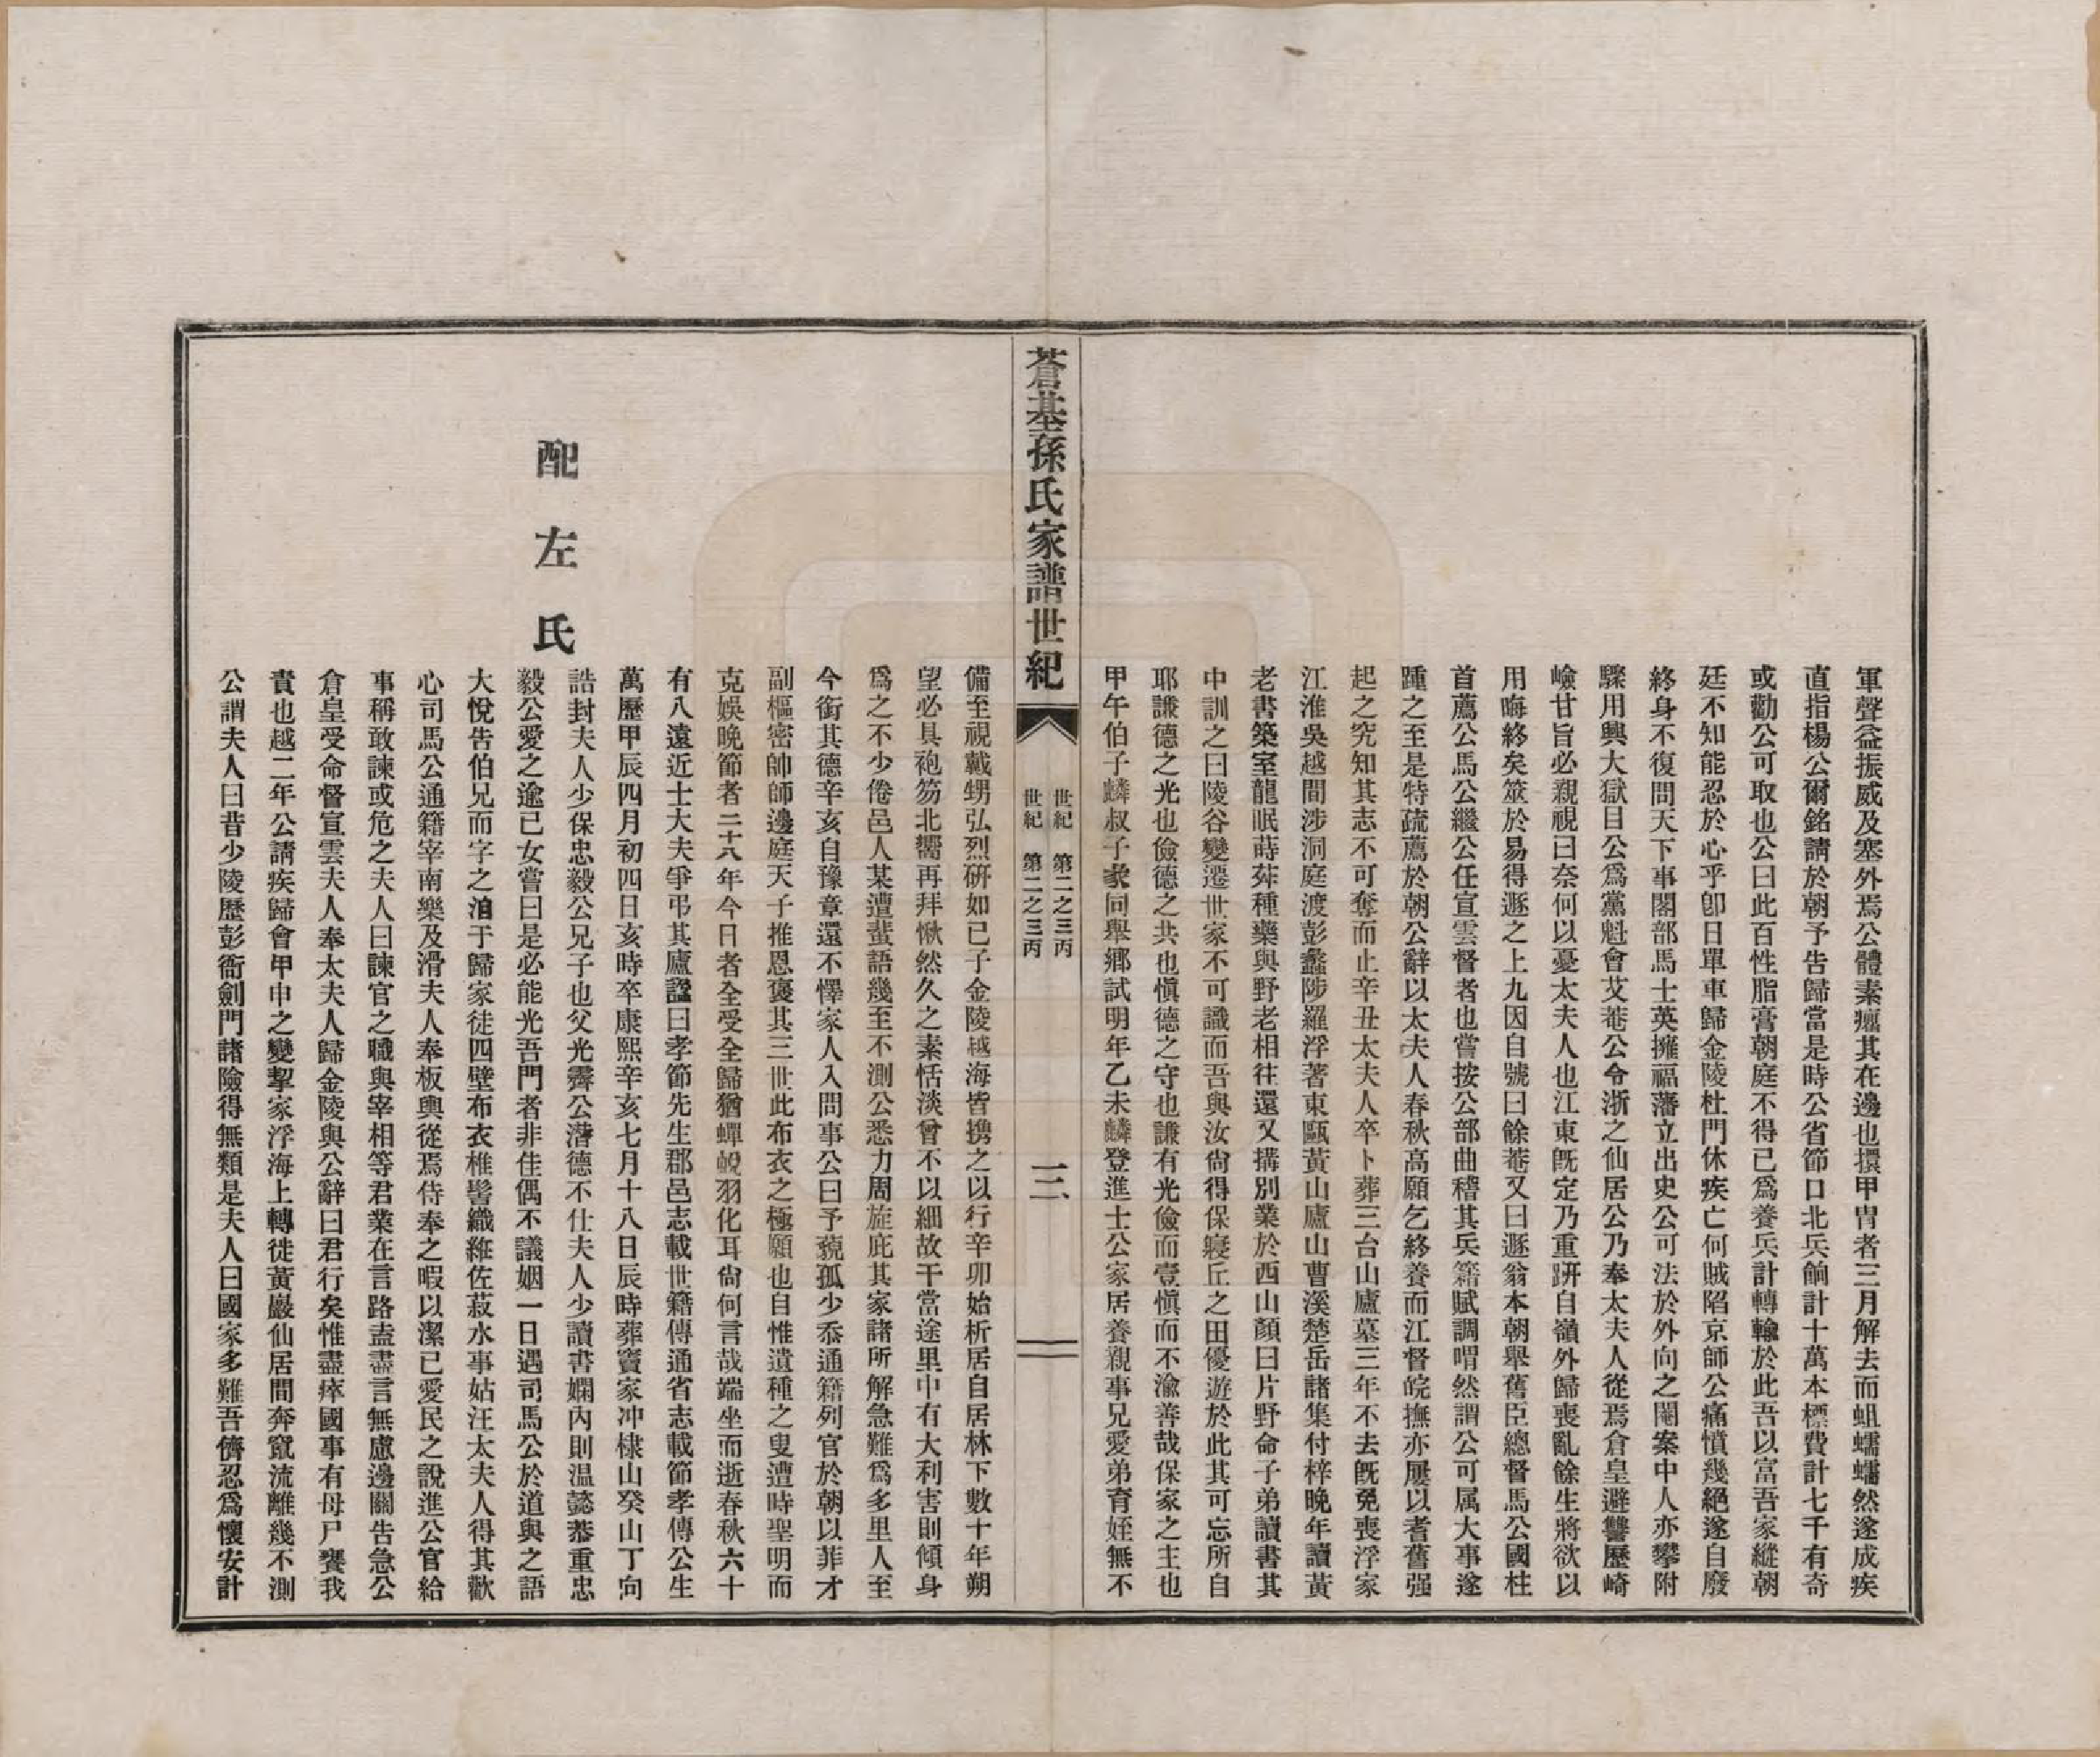 軍聲益振威及塞外焉公體素癯其在邊也擐甲胄者三月解去而蛆蠕蠕然遂成疾
直指楊公爾銘請於朝予告歸當是時公省節口北兵餉計十萬本標費計七千有奇
或勸公可取也公曰此百性脂膏朝庭不得已爲養兵計轉輸於此吾以富吾家縱朝
廷不知能忍於心乎卽日單車歸金陵杜門休疾亡何賊陷京師公痛憤幾絕遂自廢
終身不復問天下事閣部馬士英擁福藩立出史公可法於外向之閹案中人亦攀附
驟用興大獄目公爲黨魁會艾菴公令浙之仙居公乃奉太夫人從焉倉皇避讐歷崎
嶮甘旨必親視曰奈何以憂太夫人也江東既定乃重趼自嶺外歸喪亂餘生將欲以
用晦終矣筮於易得遯之上九因自號曰餘菴又曰遯翁本朝舉舊臣總督馬公國柱
首薦公馬公繼公任宣雲督者也嘗按公部曲稽其兵籍賦調喟然謂公可属大事遂
踵之至是特疏薦於朝公辭以太夫人春秋高願乞終養而江督皖撫亦屢以耆舊强
起之究知其志不可奪而止辛丑太夫人卒卜葬三台山廬墓三年不去既免喪浮家
江淮吳越間涉洞庭渡彭蠡陟羅浮著東甌黃山廬山曹溪楚岳諸集付梓晚年讀黃
老書築室龍眠蒔茮種藥與野老相往還又搆別業於西山顏曰片野命子弟讀書其
中訓之曰陵谷變遷世家不可識而吾與汝尙得保寢丘之田優遊於此其可忘所自
耶謙德之光也儉德之共也愼德之守也謙有光儉而壹愼而不渝善哉保家之主也
甲午伯子麟叔子衆同舉鄉試明年乙未麟登進士公家居養親事兄愛弟育姪無不
蒼基孫氏家譜世紀
世紀 第二之三丙
世紀 第二之三丙
三
備至視戴甥弘烈研如已子金陵越海皆携之以行辛卯始析居自居林下數十年朔
望必具袍笏北嚮再拜愀然久之素恬淡曾不以細故干當途里中有大利害則傾身
爲之不少倦邑人某遭蜚語幾至不測公悉力周旋庇其家諸所解急難爲多里人至
今銜其德辛亥自豫章還不懌家人入問事公曰予藐孤少忝通籍列官於朝以菲才
副樞密帥師邊庭天子推恩褒其三世此布衣之極願也自惟遺種之叟遭時聖明而
克娛晚節者二十八年今日者全受全歸猶蟬蛻羽化耳尙何言哉端坐而逝春秋六十
有八遠近士大夫爭弔其廬諡曰孝節先生郡邑志載世籍傳通省志載節孝傳公生
萬歷甲辰四月初四日亥時卒康熙辛亥七月十八日辰時葬竇家冲棣山癸山丁向
配左氏
誥封夫人少保忠毅公兄子也父光霽公潛德不仕夫人少讀書嫻內則温懿恭重忠
毅公愛之逾已女嘗曰是必能光吾門者非佳偶不議姻一日遇司馬公於道與之語
大悅告伯兄而字之洎于歸家徒四壁布衣椎髻織維佐菽水事姑汪太夫人得其歡
心司馬公通籍宰南樂及滑夫人奉板輿從焉侍奉之暇以潔已愛民之說進公官給
事稱敢諫或危之夫人曰諫官之職與宰相等君業在言路盍盡言無慮邊關告急公
倉皇受命督宣雲夫人奉太夫人歸金陵與公辭曰君行矣惟盡瘁國事有母尸饔我
責也越二年公請疾歸會甲申之變挈家浮海上轉徙黃巖仙居間奔竄流離幾不測
公謂夫人曰昔少陵歷彭衙劍門諸險得無類是夫人曰國家多難吾儕忍爲懷安計